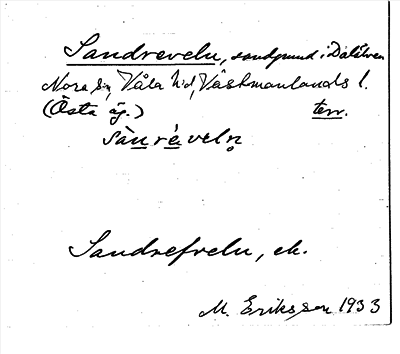 Sandreveln, sandgrund i Dalälven
Nora sn, Våla hd, Västmanlands l.
(Östa äg.) terr.
sàn réveln̥
Sandrefveln, ek.
M. Eriksson 1933